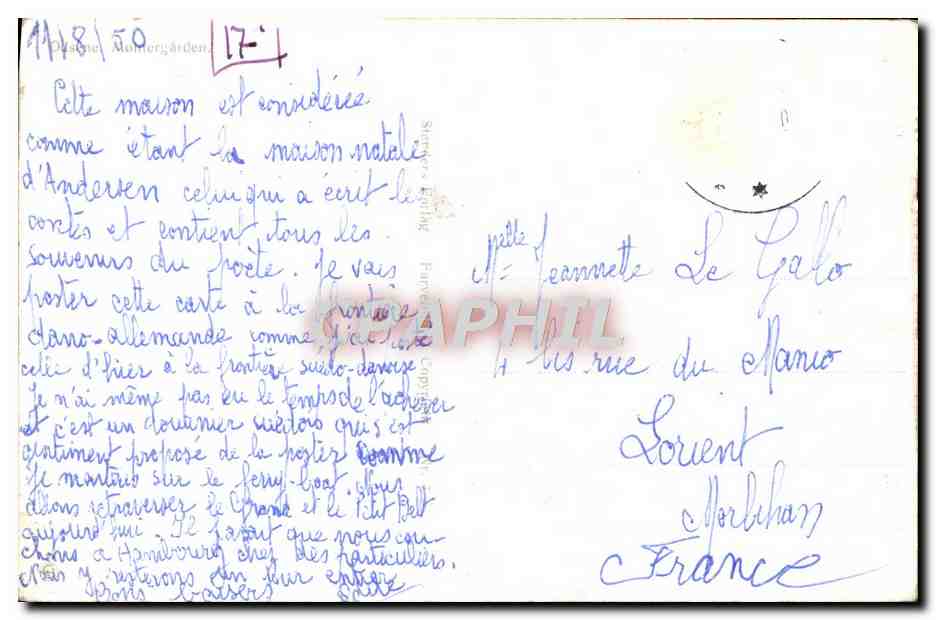 11/8/50
17
Odense, Montergården.
Cette maison est considérée
comme étant la maison natale
d'Andersen celui qui a écrit les
contes et contient tous les
souvenirs du poète. Je vais
poster cette carte à la frontière
dano-allemande comme j'ai posté
celle d'hier à la frontière suédo-danoise
Je n'ai même pas eu le temps de l'achever
et c'est un douanier suédois qui s'est
gentiment proposé de la poster comme
je montais sur le ferry-boat. Nous
allons retraverser le Grand et le Petit Belt
aujourd'hui. Il paraît que nous cou-
chons à Hambourg chez des particuliers.
Nous y resterons un jour entier
Bons baisers
Stenders Forlag
Copyright
CPAPHIL
Melle Jeannette Le Gallo
4 bis rue du Manio
Lorient
Morbihan
France